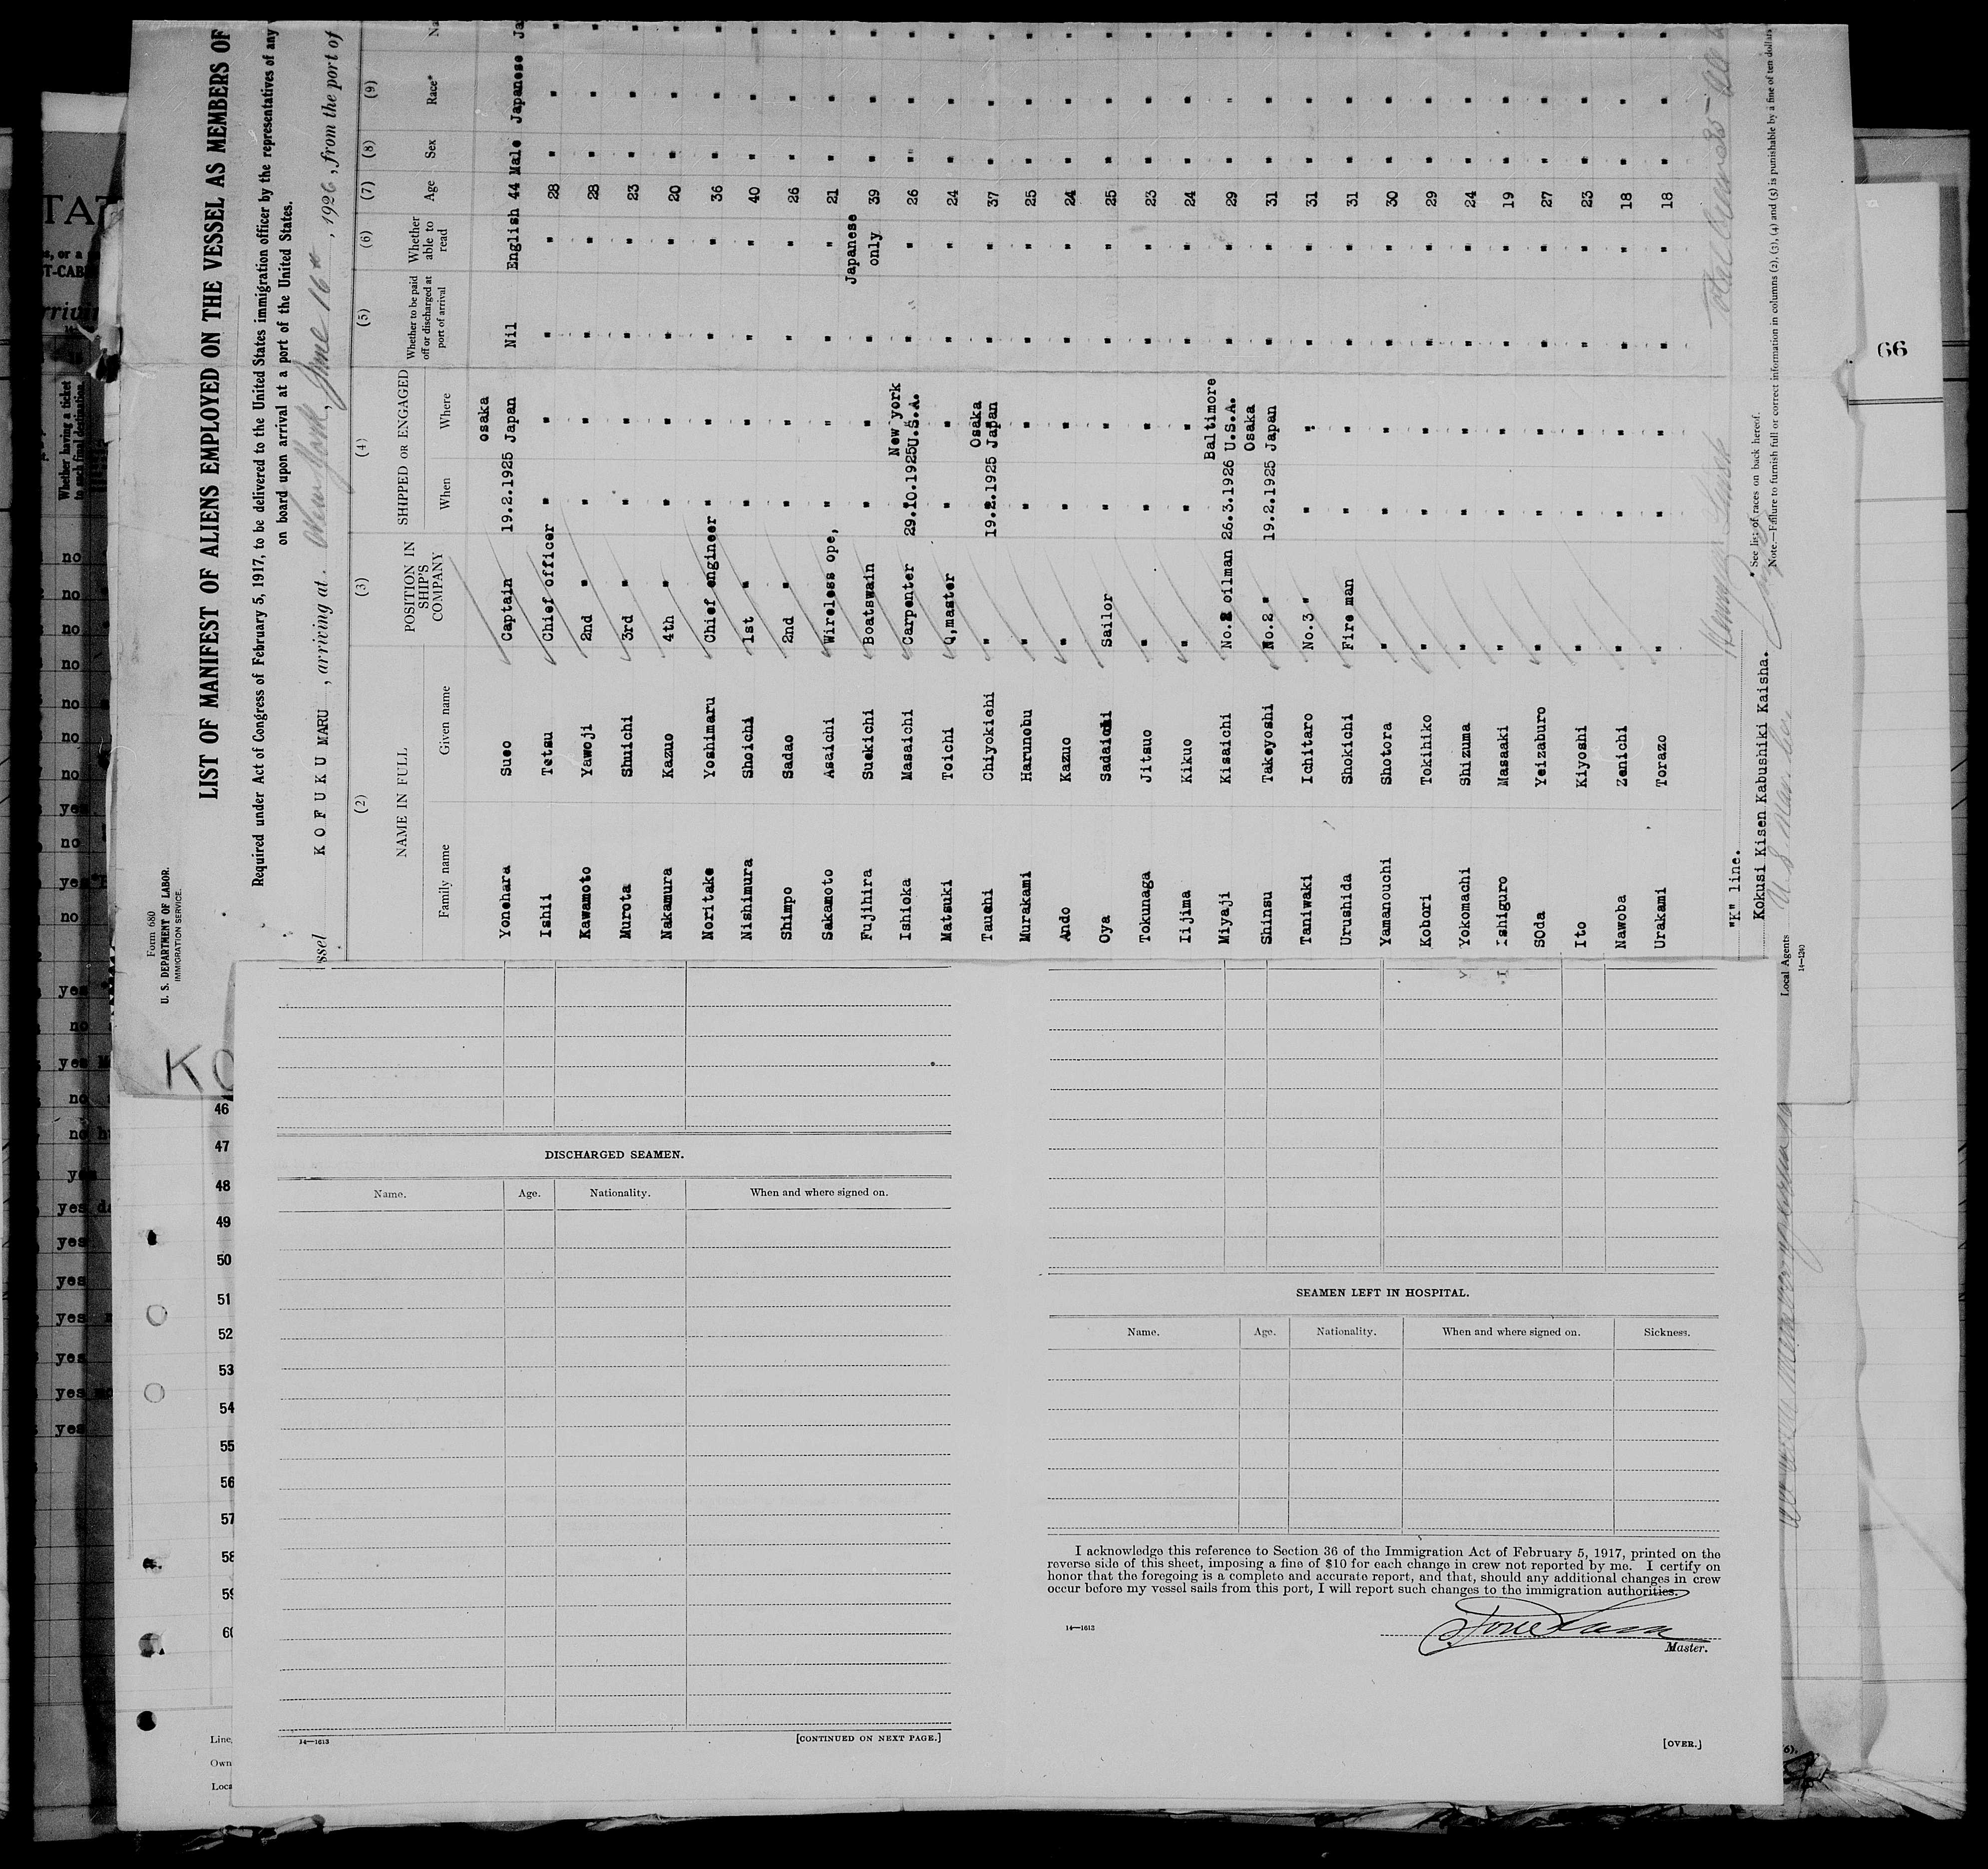 Form 680
U. S. DEPARTMENT OF LABOR.
IMMIGRATION SERVICE.
LIST OF MANIFEST OF ALIENS EMPLOYED ON THE VESSEL AS MEMBERS OF
Required under Act of Congress of February 5, 1917, to be delivered to the United States immigration officer by the representatives of any
on board upon arrival at a port of the United States.
ssel KOFUKU MARU, arriving at New York, June 16th, 1926, from the port of
(2) (3) (4) (5) (6) (7) (8) (9)
NAME IN FULL POSITION IN SHIP'S COMPANY SHIPPED OR ENGAGED Whether to be paid off or discharged at port of arrival Whether able to read Age Sex Race* Na
Family name Given name When Where
Osaka
Yonehara Sueo Captain 19.2.1925 Japan Nil English 44 Male Japanese Ja
Ishii Tetsu Chief officer " " " " 28 " " "
Kawamoto Yawoji 2nd " " " " " 28 " " "
Murota Shuichi 3rd " " " " " 23 " " "
Nakamura Kazuo 4th " " " " " 20 " " "
Noritake Yoshimaru Chief engineer " " " " 36 " " "
Nishimura Shoichi 1st " " " " " 40 " " "
Shimpo Sadao 2nd " " " " " 26 " " "
Sakamoto Asaichi Wireless ope, " " " " 21 " " "
Japanese
Fujihira Suekichi Boatswain " " " only 39 " " "
New york
Ishioka Masaichi Carpenter 29.10.1925 U.S.A. " " 26 " " "
Matsuki Toichi Q,master " " " " 24 " " "
Osaka
Tauchi Chiyokichi " 19.2.1925 Japan " " 37 " " "
Murakami Harunobu " " " " " 25 " " "
Ando Kazuo " " " " " 24 " " "
Oya Sadaichi Sailor " " " " 25 " " "
Tokunaga Jitsuo " " " " " 23 " " "
Iijima Kikuo " " " " " 24 " " "
Baltimore
Miyaji Kisaichi No. oilman 26.3.1926 U.S.A. " " 29 " " "
Osaka
Shinsu Takeyoshi No.2 " 19.2.1925 Japan " " 31 " " "
Taniwaki Ichitaro No.3 " " " " " 31 " " "
Urushida Shokichi Fire man " " " " 31 " " "
Yamanouchi Shotora " " " " " 30 " " "
Kobori Tokihiko " " " " " 29 " " "
Yokomachi Shizuma " " " " " 24 " " "
Ishiguro Masaaki " " " " " 19 " " "
SOda Yeizaburo " " " " " 27 " " "
Ito Kiyoshi " " " " " 23 " " "
Nawoba Zenichi " " " " " 18 " " "
Urakami Torazo " " " " " 18 " " "
"K" line.
Kokusi Kisen Kabushiki Kaisha.
Local Agents
14—1240
* See list of races on back hereof.
Note.—Failure to furnish full or correct information in columns (2), (3), (4) and (5) is punishable by a fine of ten dollars
66
KO
46
47
48
49
50
51
52
53
54
55
56
57
58
59
60
Line,
Own
Loca
DISCHARGED SEAMEN.
Name. Age. Nationality. When and where signed on.
14—1613
[CONTINUED ON NEXT PAGE.]
SEAMEN LEFT IN HOSPITAL.
Name. Age. Nationality. When and where signed on. Sickness.
I acknowledge this reference to Section 36 of the Immigration Act of February 5, 1917, printed on the
reverse side of this sheet, imposing a fine of $10 for each change in crew not reported by me. I certify on
honor that the foregoing is a complete and accurate report, and that, should any additional changes in crew
occur before my vessel sails from this port, I will report such changes to the immigration authorities.
14—1613
Master.
[OVER.]